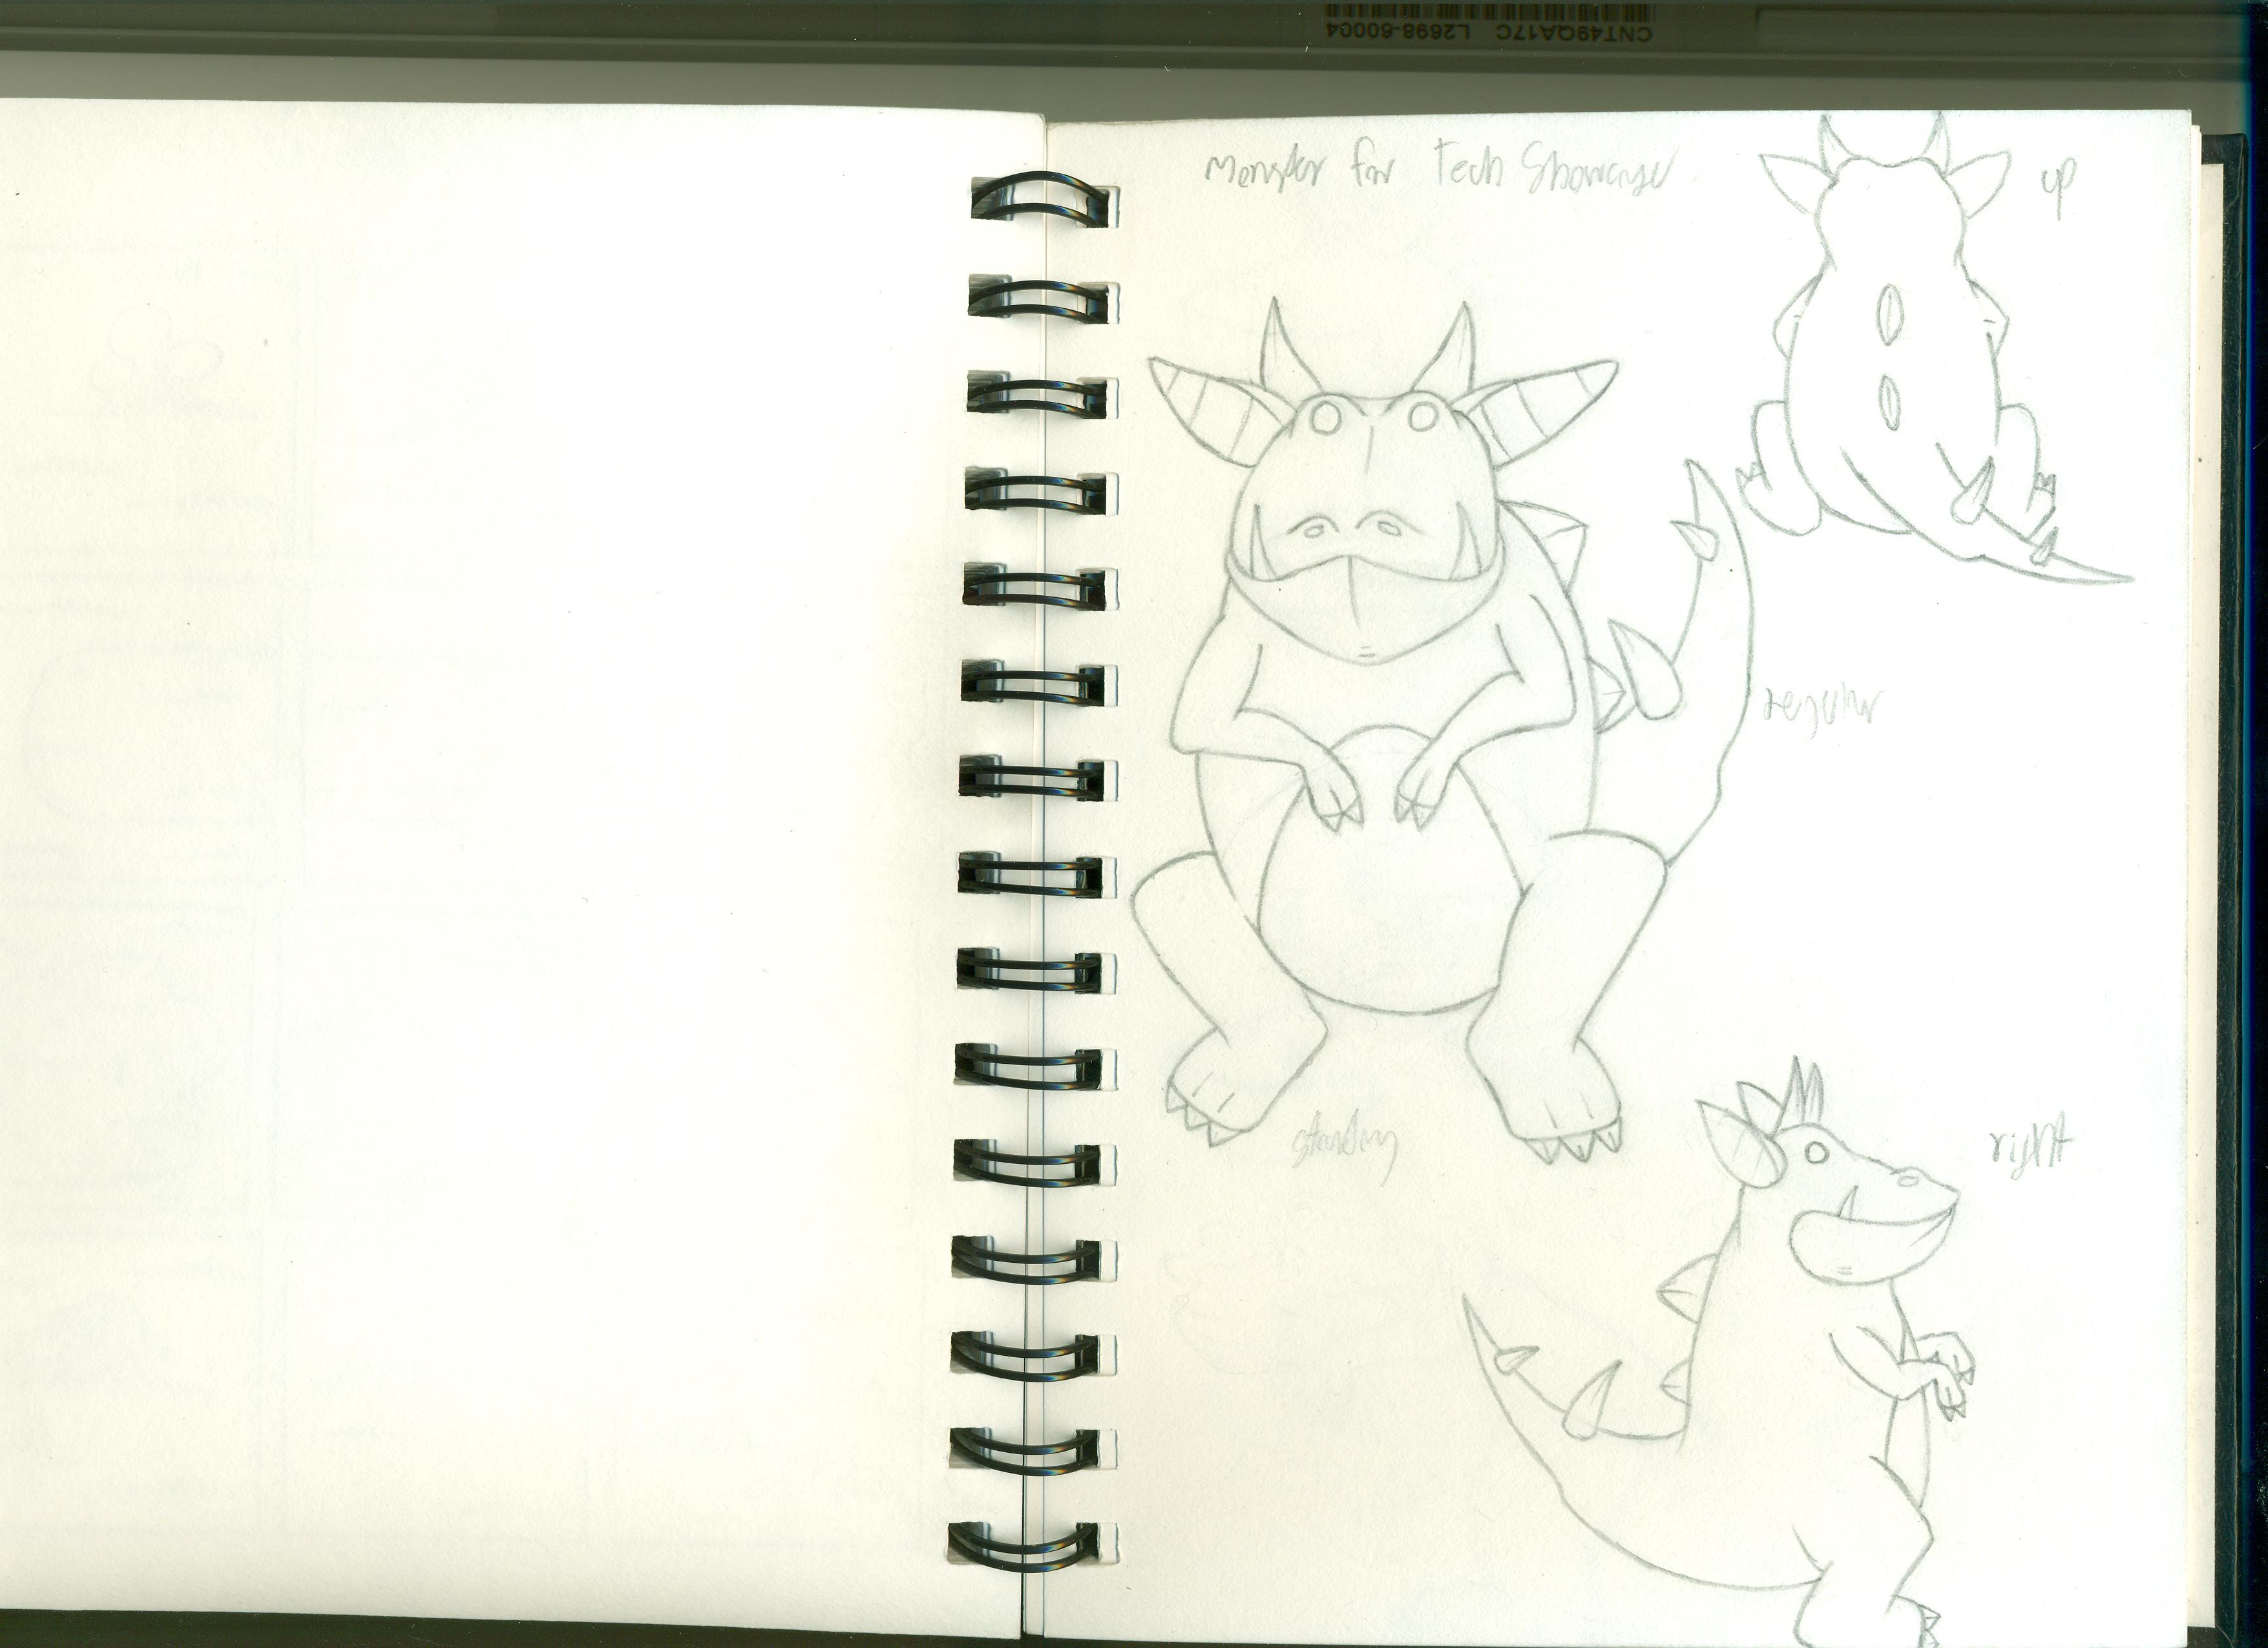 CNT49QA17C L2698-60004
Monster for Tech Showcase
up
regular
standing
right